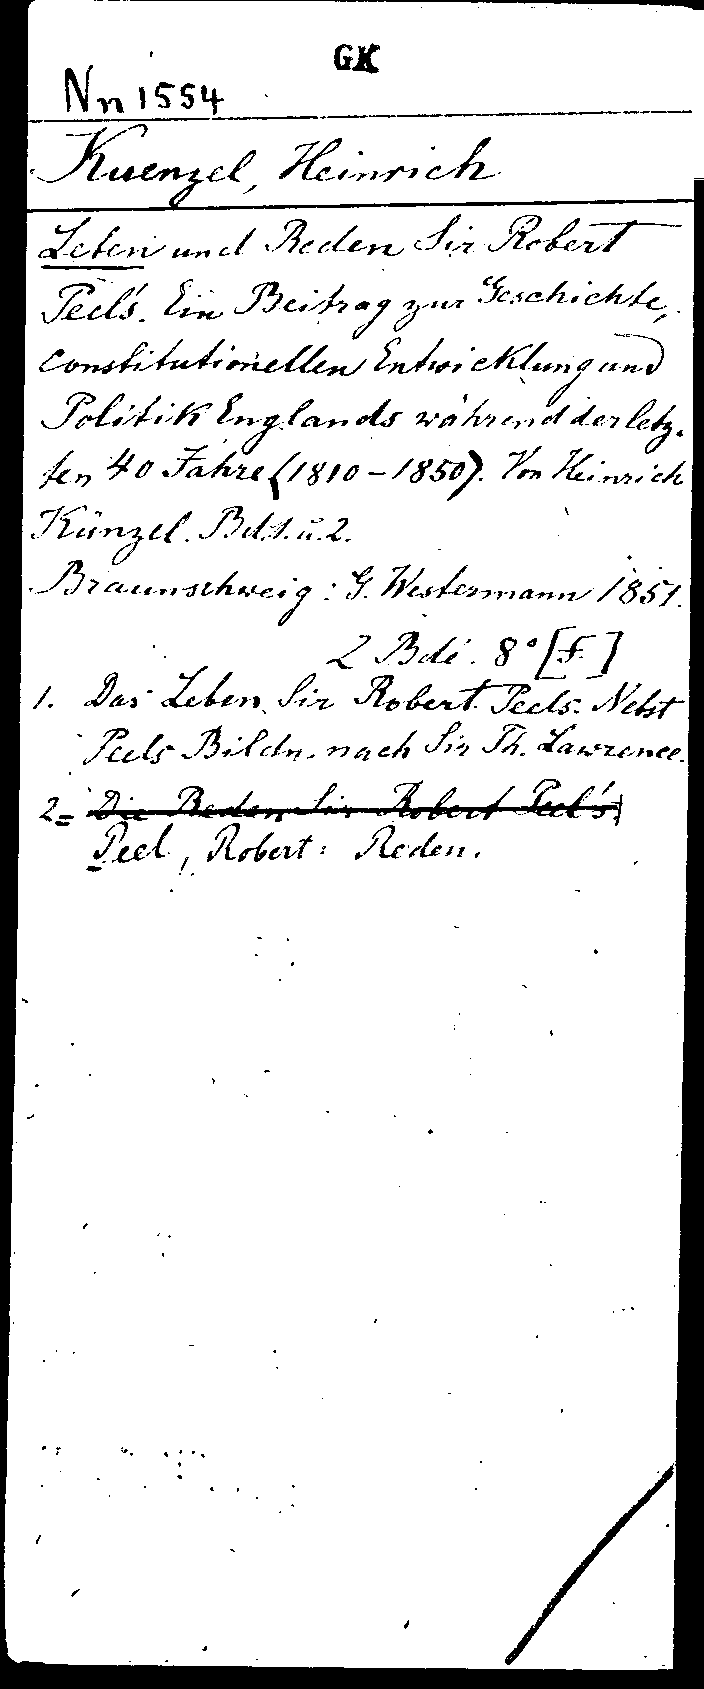 GK
Nn 1554
Kuenzel, Heinrich
Leben und Reden Sir Robert
Peel's. Ein Beitrag zur Geschichte,
constitutionellen Entwicklung und
Politik Englands während der letz-
ten 40 Jahre (1810-1850). Von Heinrich
Künzel. Bd.1.u.2.
Braunschweig: G. Westermann 1851.
2 Bde. 8° [F.]
1. Das Leben Sir Robert Peels. Nebst
Peels Bildn. nach Sir Th. Lawrence.
2= Die Reden Sir Robert Peel's
Peel, Robert: Reden.